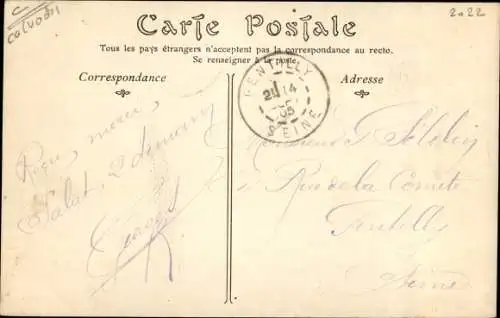 C
Calvados
2022
Carte Postale
Tous les pays étrangers n'acceptent pas la correspondance au recto.
Se renseigner à la poste.
Correspondance
Adresse
GENTILLY
21 14
05
SEINE
Reçu, merci
Salut, à demain
Georges
Monsieur G
Rue de la Comète
Gentilly
Seine